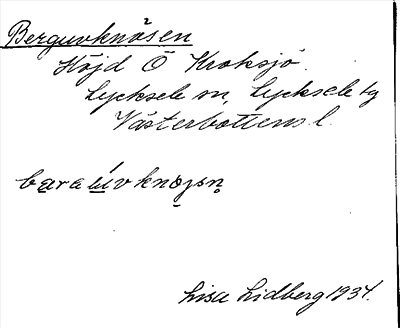 Berguvknösen
Höjd Ö Kroksjö.
Lycksele sn, Lycksele tg
Västerbottens l.
baraúvknøzsn̥
Lisa Lidberg 1934.